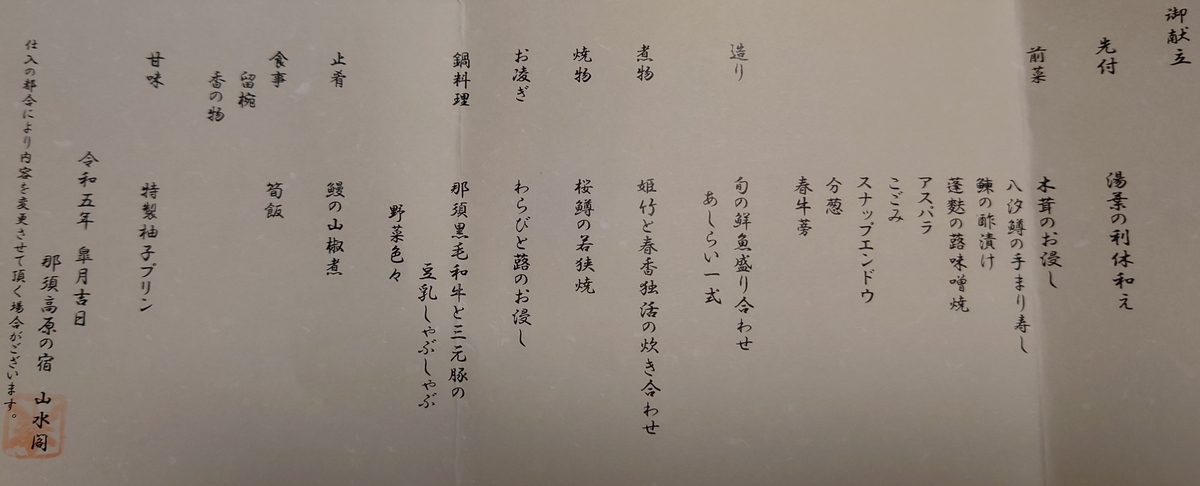 御献立
先付　湯葉の利休和え
前菜　木茸のお浸し
八汐鱒の手まり寿し
鰊の酢漬け
蓬麩の蕗味噌焼
アスパラ
こごみ
スナップエンドウ
分葱
春牛蒡
造り　旬の鮮魚盛り合わせ
あしらい一式
煮物　姫竹と春香独活の炊き合わせ
焼物　桜鱒の若狭焼
お凌ぎ　わらびと蕗のお浸し
鍋料理　那須黒毛和牛と三元豚の
豆乳しゃぶしゃぶ
野菜色々
止肴　鰻の山椒煮
食事　筍飯
留椀
香の物
甘味　特製柚子プリン
令和五年　皐月吉日
那須高原の宿　山水閣
仕入の都合により内容を変更させて頂く場合がございます。